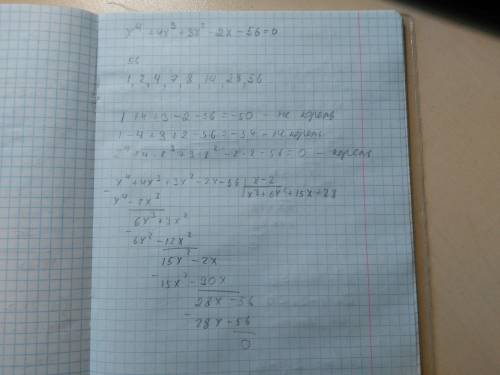 x⁴ + 4x³ + 3x² - 2x - 56 = 0
56
1, 2, 4, 7, 8, 14, 28, 56
1 + 4 + 3 - 2 - 56 = -50 - не корень
1 - 4 + 3 + 2 - 56 = -54 - не корень
2⁴ + 4 · 2³ + 3 · 2² - 2 · 2 - 56 = 0 - корень
x⁴ + 4x³ + 3x² - 2x - 56 | x - 2
x⁴ - 2x³ x³ + 6x² + 15x + 28
6x³ + 3x²
6x² - 12x²
15x² - 2x
15x² - 30x
28x - 56
28x + 56
0